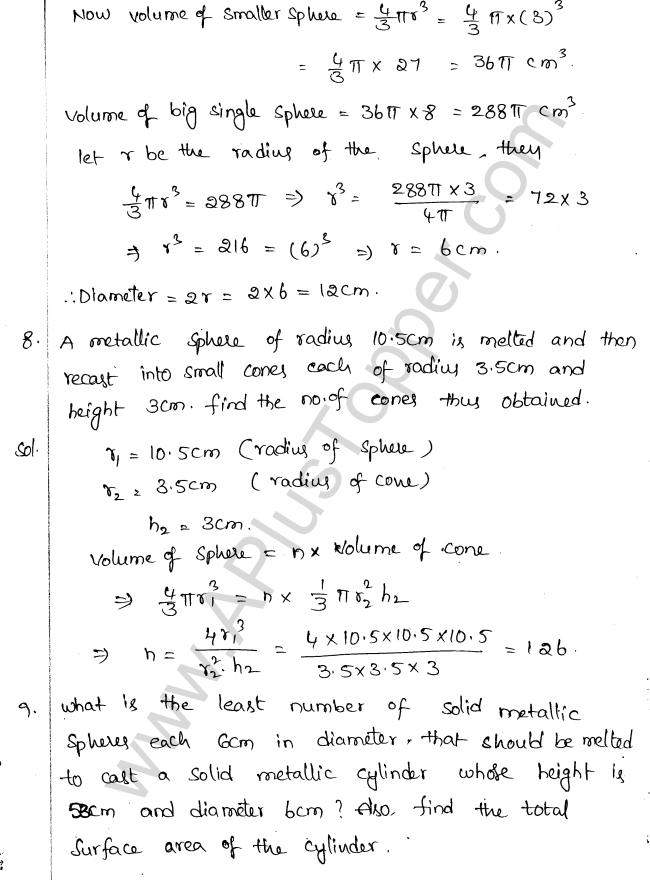 Now volume of smaller sphere = 4/3 πr³ = 4/3 π×(3)³
= 4/3 π × 27 = 36π cm³.
Volume of big single sphere = 36π × 8 = 288π cm³
let r be the radius of the sphere, they
4/3 πr³ = 288π ⇒ r³ = 288π × 3 / 4π = 72 × 3
⇒ r³ = 216 = (6)³ ⇒ r = 6cm.
∴ Diameter = 2r = 2×6 = 12cm.
8. A metallic sphere of radius 10.5cm is melted and then
recast into small cones each of radius 3.5cm and
height 3cm. find the no.of cones thus obtained.
Sol. r₁ = 10.5cm (radius of sphere)
r₂ = 3.5cm (radius of cone)
h₂ = 3cm.
Volume of sphere = n× Volume of cone
⇒ 4/3 πr₁³ = n × 1/3 π r₂² h₂
⇒ n = 4r₁³ / r₂².h₂ = 4 × 10.5 × 10.5 × 10.5 / 3.5 × 3.5 × 3 = 126.
9. what is the least number of solid metallic
spheres each 6cm in diameter, that should be melted
to cast a solid metallic cylinder whose height is
cm and diameter 6cm? Also, find the total
surface area of the cylinder.
www.APlusTopper.com